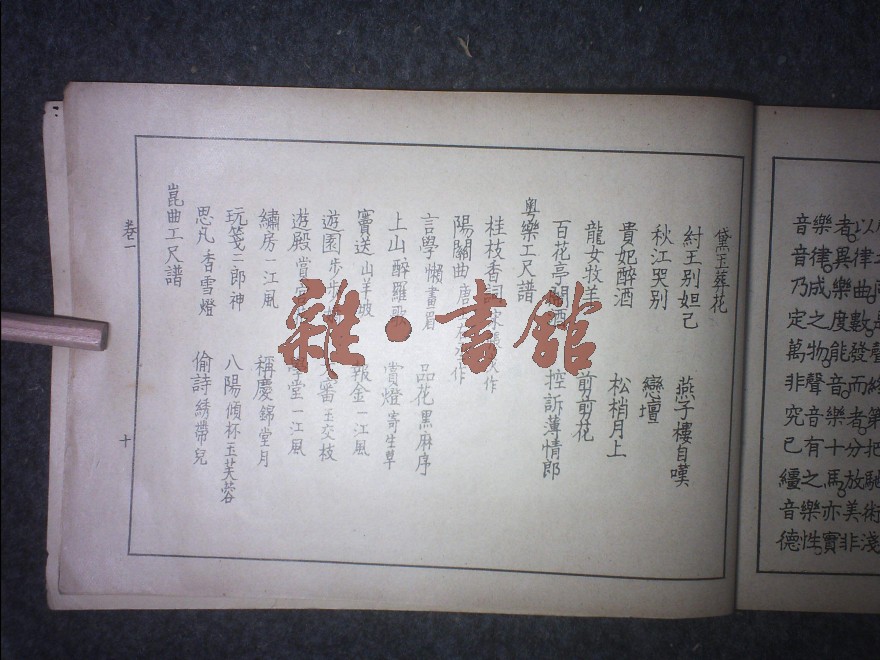 黛玉葬花
紂王别妲己 燕子樓自嘆
秋江哭别 戀壇
貴妃醉酒 松梢月上
龍女牧羊 剪剪花
百花亭鬧酒 控訴薄情郎
粤樂工尺譜
桂枝香詞 作
陽關曲 唐 作
言學 懶畫眉 品花 黑麻序
上山 醉羅歌 賞燈 寄生草
竇送 山羊坡 報金 一江風
遊園 步步 審 玉交枝
遊殿 賞宮 學堂 一江風
繡房 一江風 稱慶 錦堂月
玩箋 二郎神 八陽 傾杯玉芙蓉
思凡 香雪燈 偷詩 綉帶兒
崑曲工尺譜
卷一
十
雜·書館
音樂者。以
音律。異律
乃成樂曲。
定之度數。
萬物。能發聲
非聲音。而
究音樂者。第
已有十分把
韁之馬。放馳
音樂亦美術
德性。實非淺